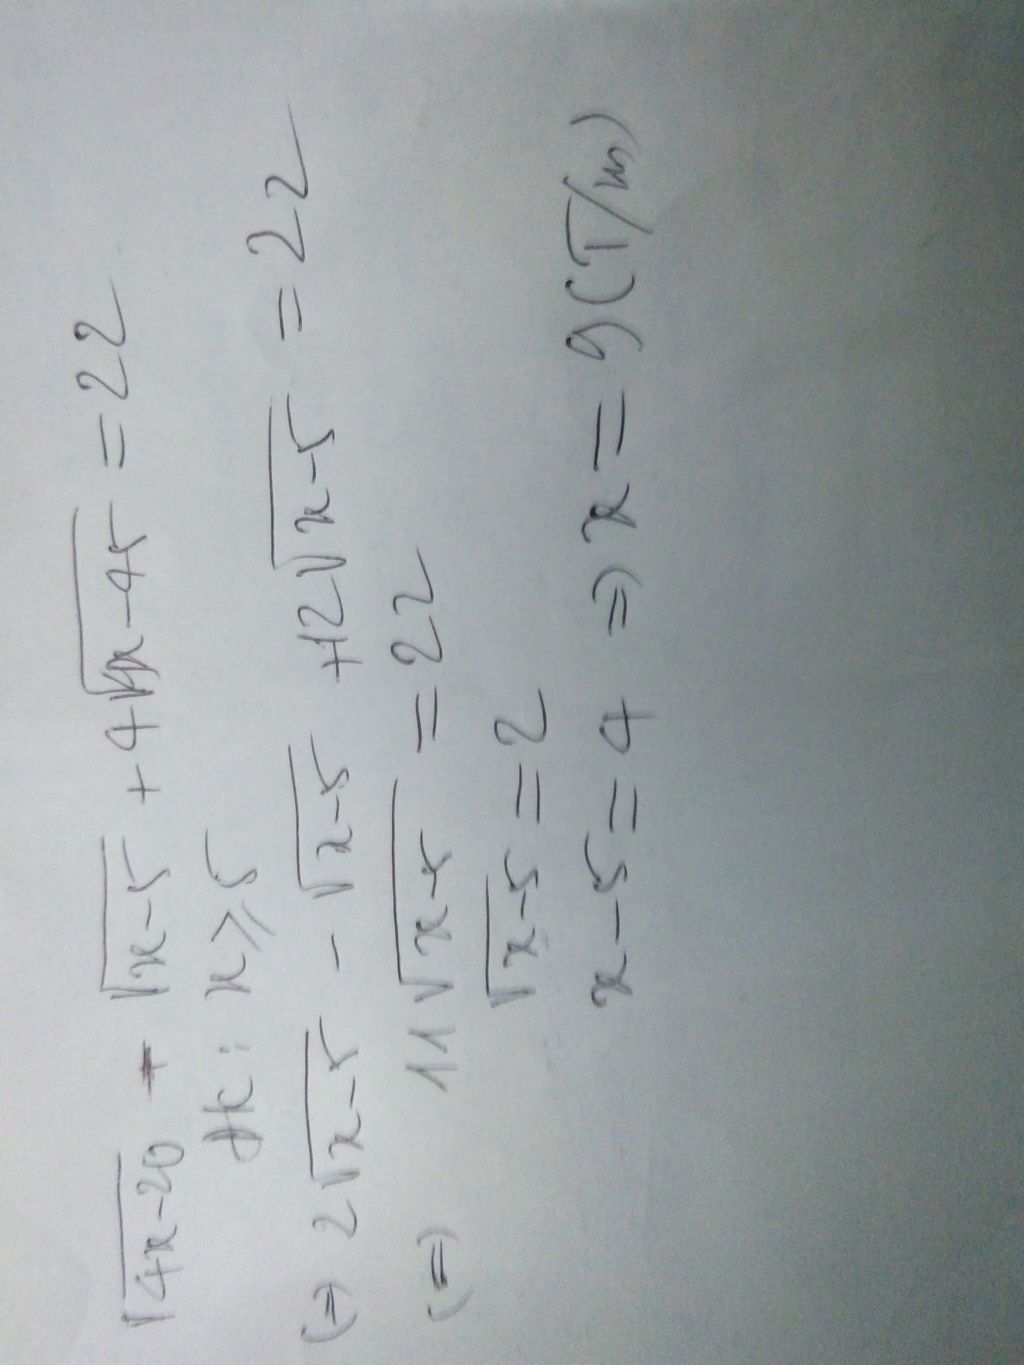 √(4x-20) - √(x-5) + 4√(9x-45) = 22
đk: x ≥ 5
(=) 2√(x-5) - √(x-5) + 12√(x-5) = 22
(=) 11√(x-5) = 22
√(x-5) = 2
x-5 = 4 => x = 9 (T/m)